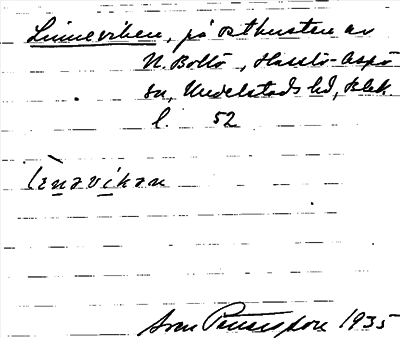 Linneviken, på ostkusten av
N. Boltö, Hasslö-Aspö
sn, Medelstads hd, Blek.
l. 52
lènavikan
Sven Benson 1935